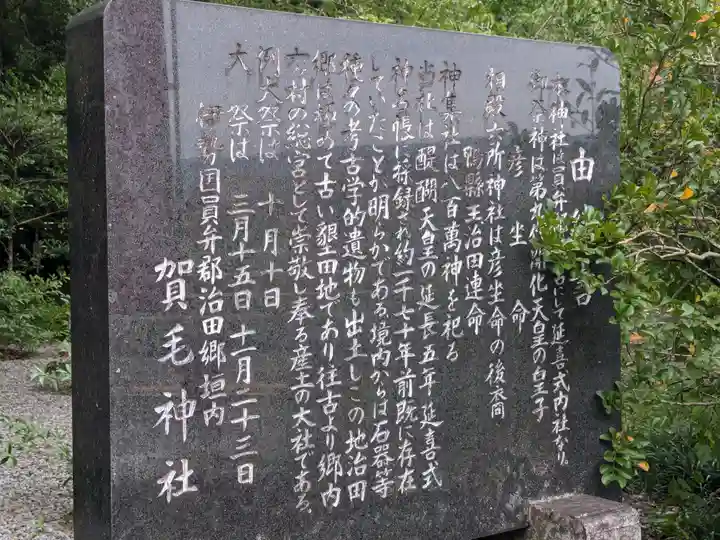 由
神社は員弁 して延喜式内社なり。
御祭神は第九代開化天皇の皇王子
彦坐命
相殿六所神社は彦坐命の後裔
鴨縣王治田連命
神集社は八百萬神を祀る
当社は醍醐天皇の延長五年延喜式
神名帳に符録され約一千七十年前既に存在
していたことが明らかである境内からは石器等
種々の考古学的遺物も出土しこの地治田
郷は極めて古い墾田地であり往古より郷内
六ヶ村の総宮として崇敬し奉る産土の大社である、
例大祭は 十月十日
大祭は 三月十五日 十一月二十三日
伊勢国員弁郡治田郷垣内
賀毛神社